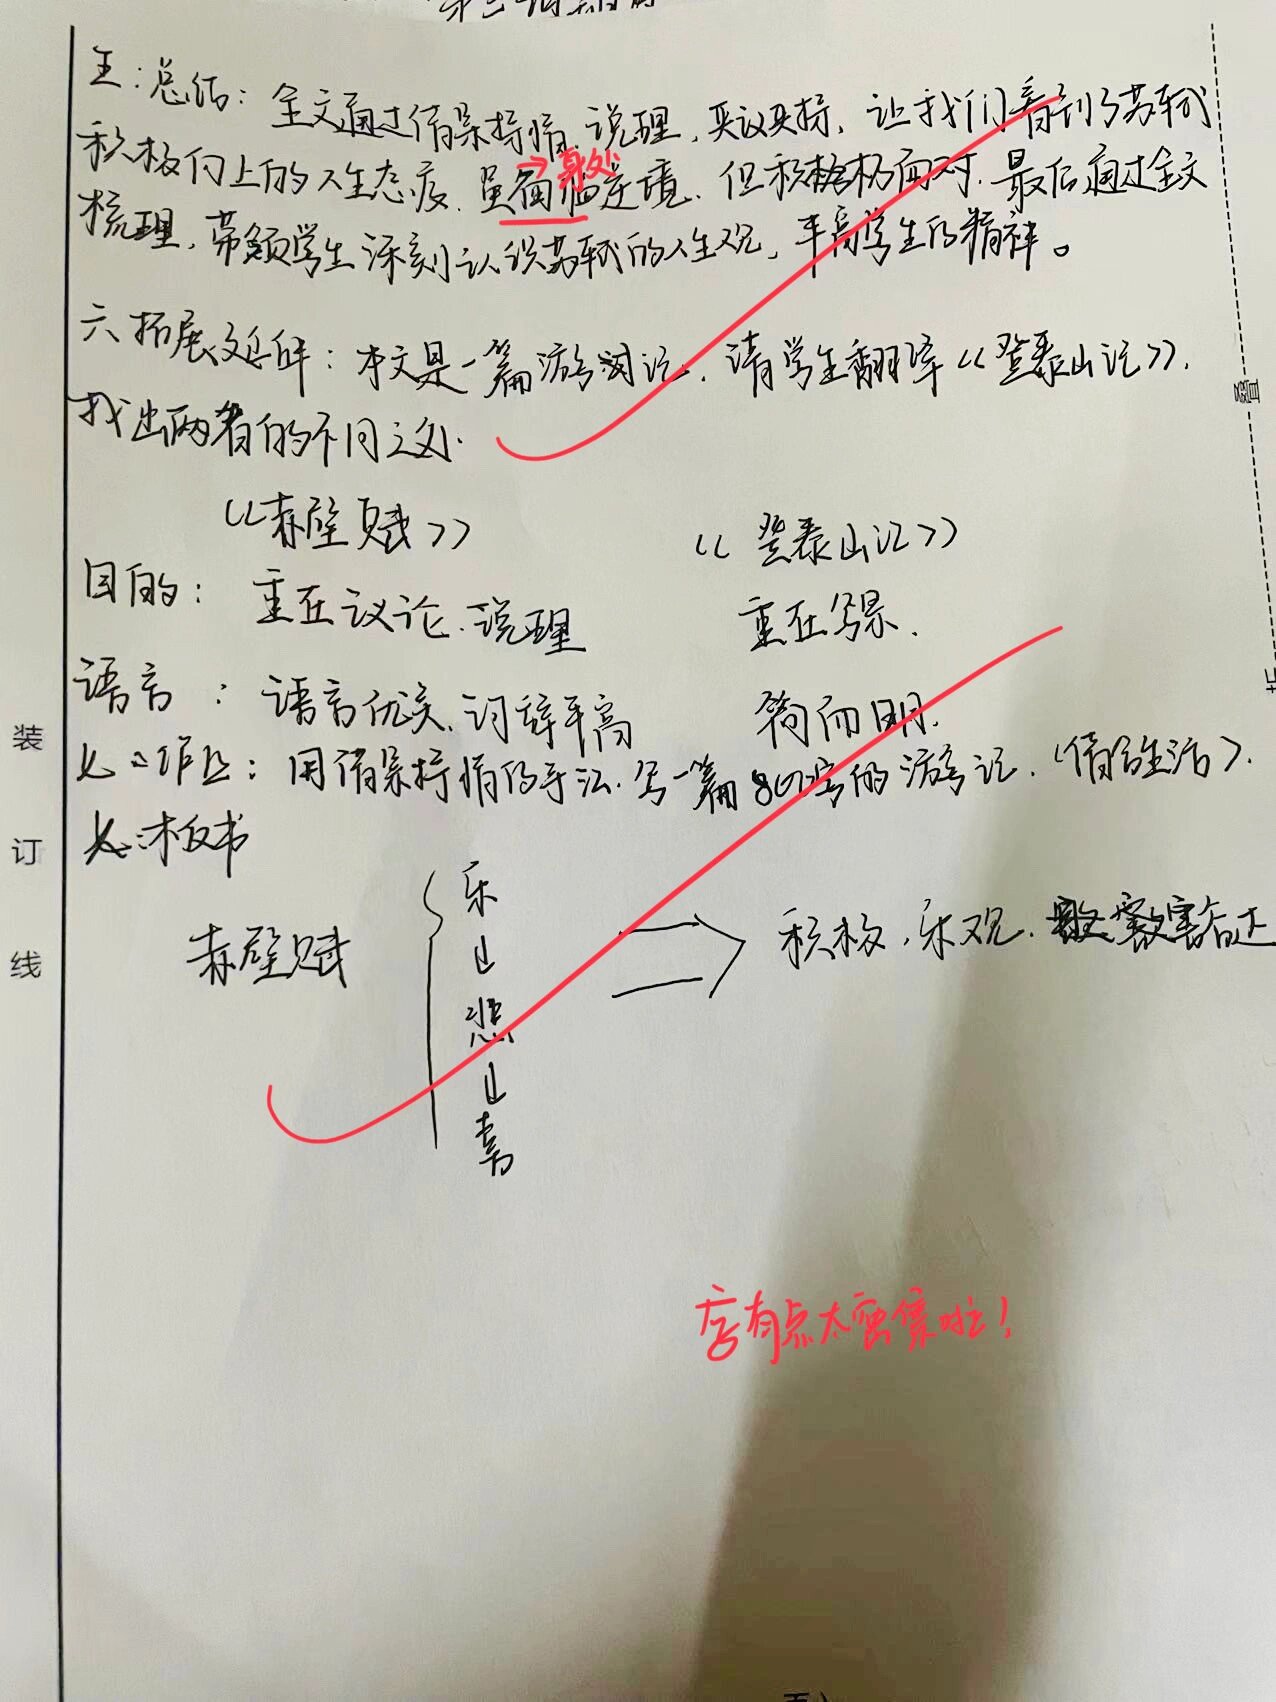 五:总结: 全文通过借景抒情、说理, 夹议夹抒, 让我们看到了苏轼
积极向上的人生态度, 虽面临逆境, 但积极面对, 最后通过全文
身处
梳理, 带领学生深刻认识苏轼的人生观, 丰富学生的精神。
六 拓展延伸: 本文是一篇游记, 请学生翻译《登泰山记》,
找出两者的不同之处.
《赤壁赋》 《登泰山记》
目的: 重在议论、说理 重在写景.
语言: 语言优美、词辞丰富 简而明.
七: 作业: 用借景抒情的手法, 写一篇800字的游记. (结合生活).
板书
赤壁赋 积极、乐观、豁达
乐
悲
喜
字有点太密集啦!
装
订
线
叠